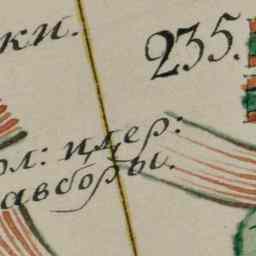 ки.
235.
ол: идер:
авсоры.